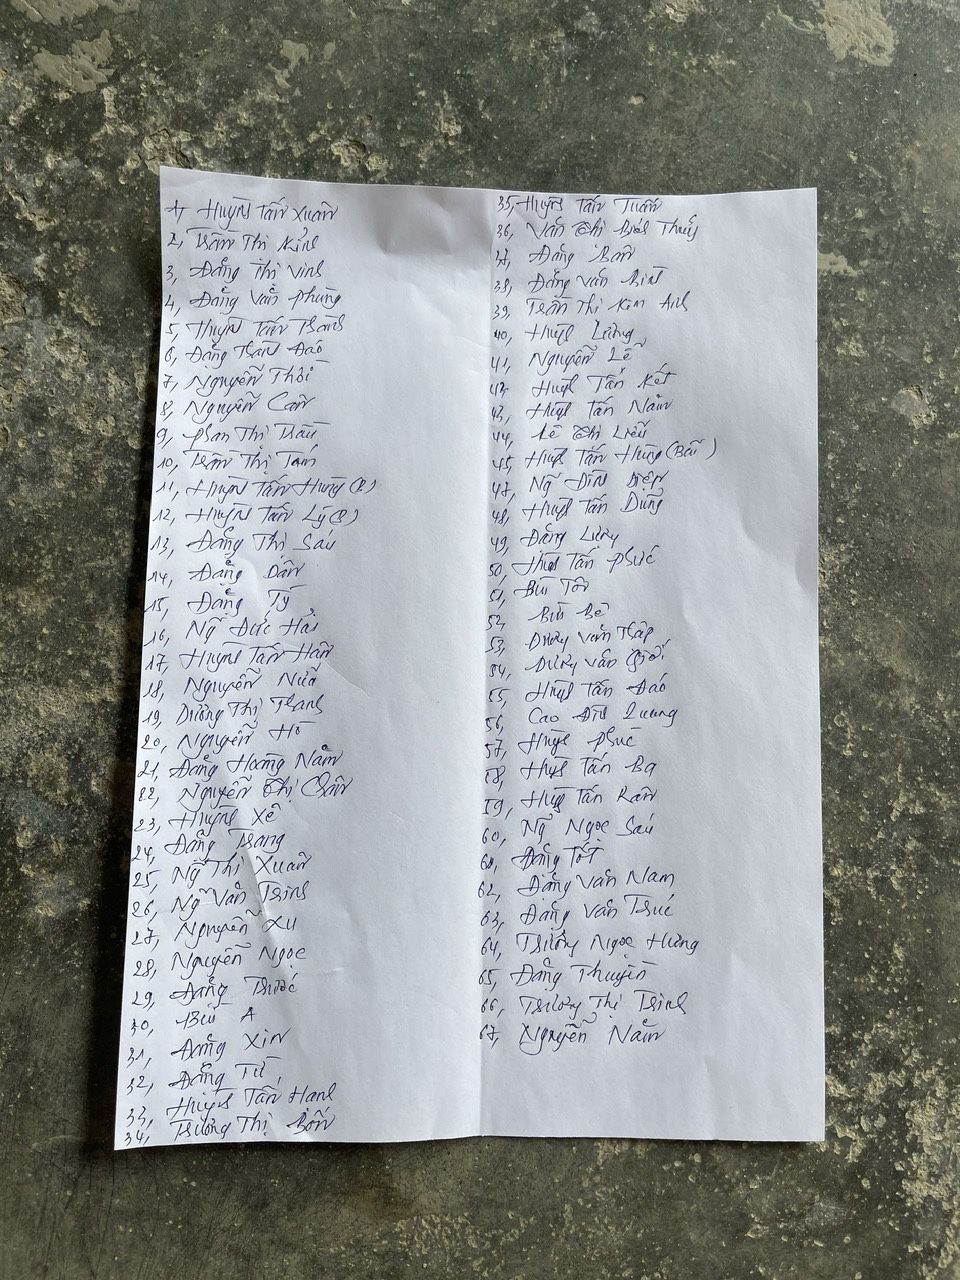 1, Huỳnh Tấn Xuân
2, Trần Thị Kỉnh
3, Đặng Thị Vinh
4, Đặng Văn Phụng
5, Huỳnh Tấn Thành
6, Đặng Đào
7, Nguyễn Thôi
8, Nguyễn Cân
9, Phan Thị
10, Trần Thị Tám
11, Huỳnh Tấn Hưng (B)
12, Huỳnh Tấn Lý (B)
13, Đặng Thị Sáu
14, Đặng Dần
15, Đặng Tý
16, Ng̃ Đức Hải
17, Huỳnh Tấn Hân
18, Nguyễn Nữa
19, Dương Thị Thanh
20, Nguyễn Hồ
21, Đặng Hoàng Năm
22, Nguyễn Thị Chân
23, Huỳnh Xê
24, Đặng Trang
25, Ng̃ Thị Xuân
26, Ng̃ Văn Trinh
27, Nguyễn Xu
28, Nguyễn Ngọc
29, Đặng Thước
30, Bùi A
31, Đặng Xin
32, Đặng Từ
33, Huỳnh Tấn Hạnh
34, Trương Thị Bốn
35, Huỳnh Tấn Tuấn
36, Văn Thị Bích Thủy
37, Đặng Bân
38, Đặng Văn Bình
39, Trần Thị Kim Anh
40, Huỳnh Lương
41, Nguyễn Lễ
42, Huỳnh Tấn Kết
43, Huỳnh Tấn Năm
44, Lê Thị Liễu
45, Huỳnh Tấn Hùng (Bảu)
47, Ng̃ Đình Diệp
48, Huỳnh Tấn Dũng
49, Đặng Lương
50, Huỳnh Tấn Phước
51, Bùi Tôn
52, Bùi Bê
53, Dương Văn Thập
54, Dương Văn
55, Huỳnh Tấn Đào
56, Cao Đình Quang
57, Huỳnh Phúc
58, Huỳnh Tấn Ba
59, Huỳnh Tấn
60, Ng̃ Ngọc Sáu
60, Đặng Tốt
62, Đặng Văn Nam
63, Đặng Văn Trúc
64, Trương Ngọc Hưng
65, Đặng Thuyền
66, Trương Thị Trinh
67, Nguyễn Năm